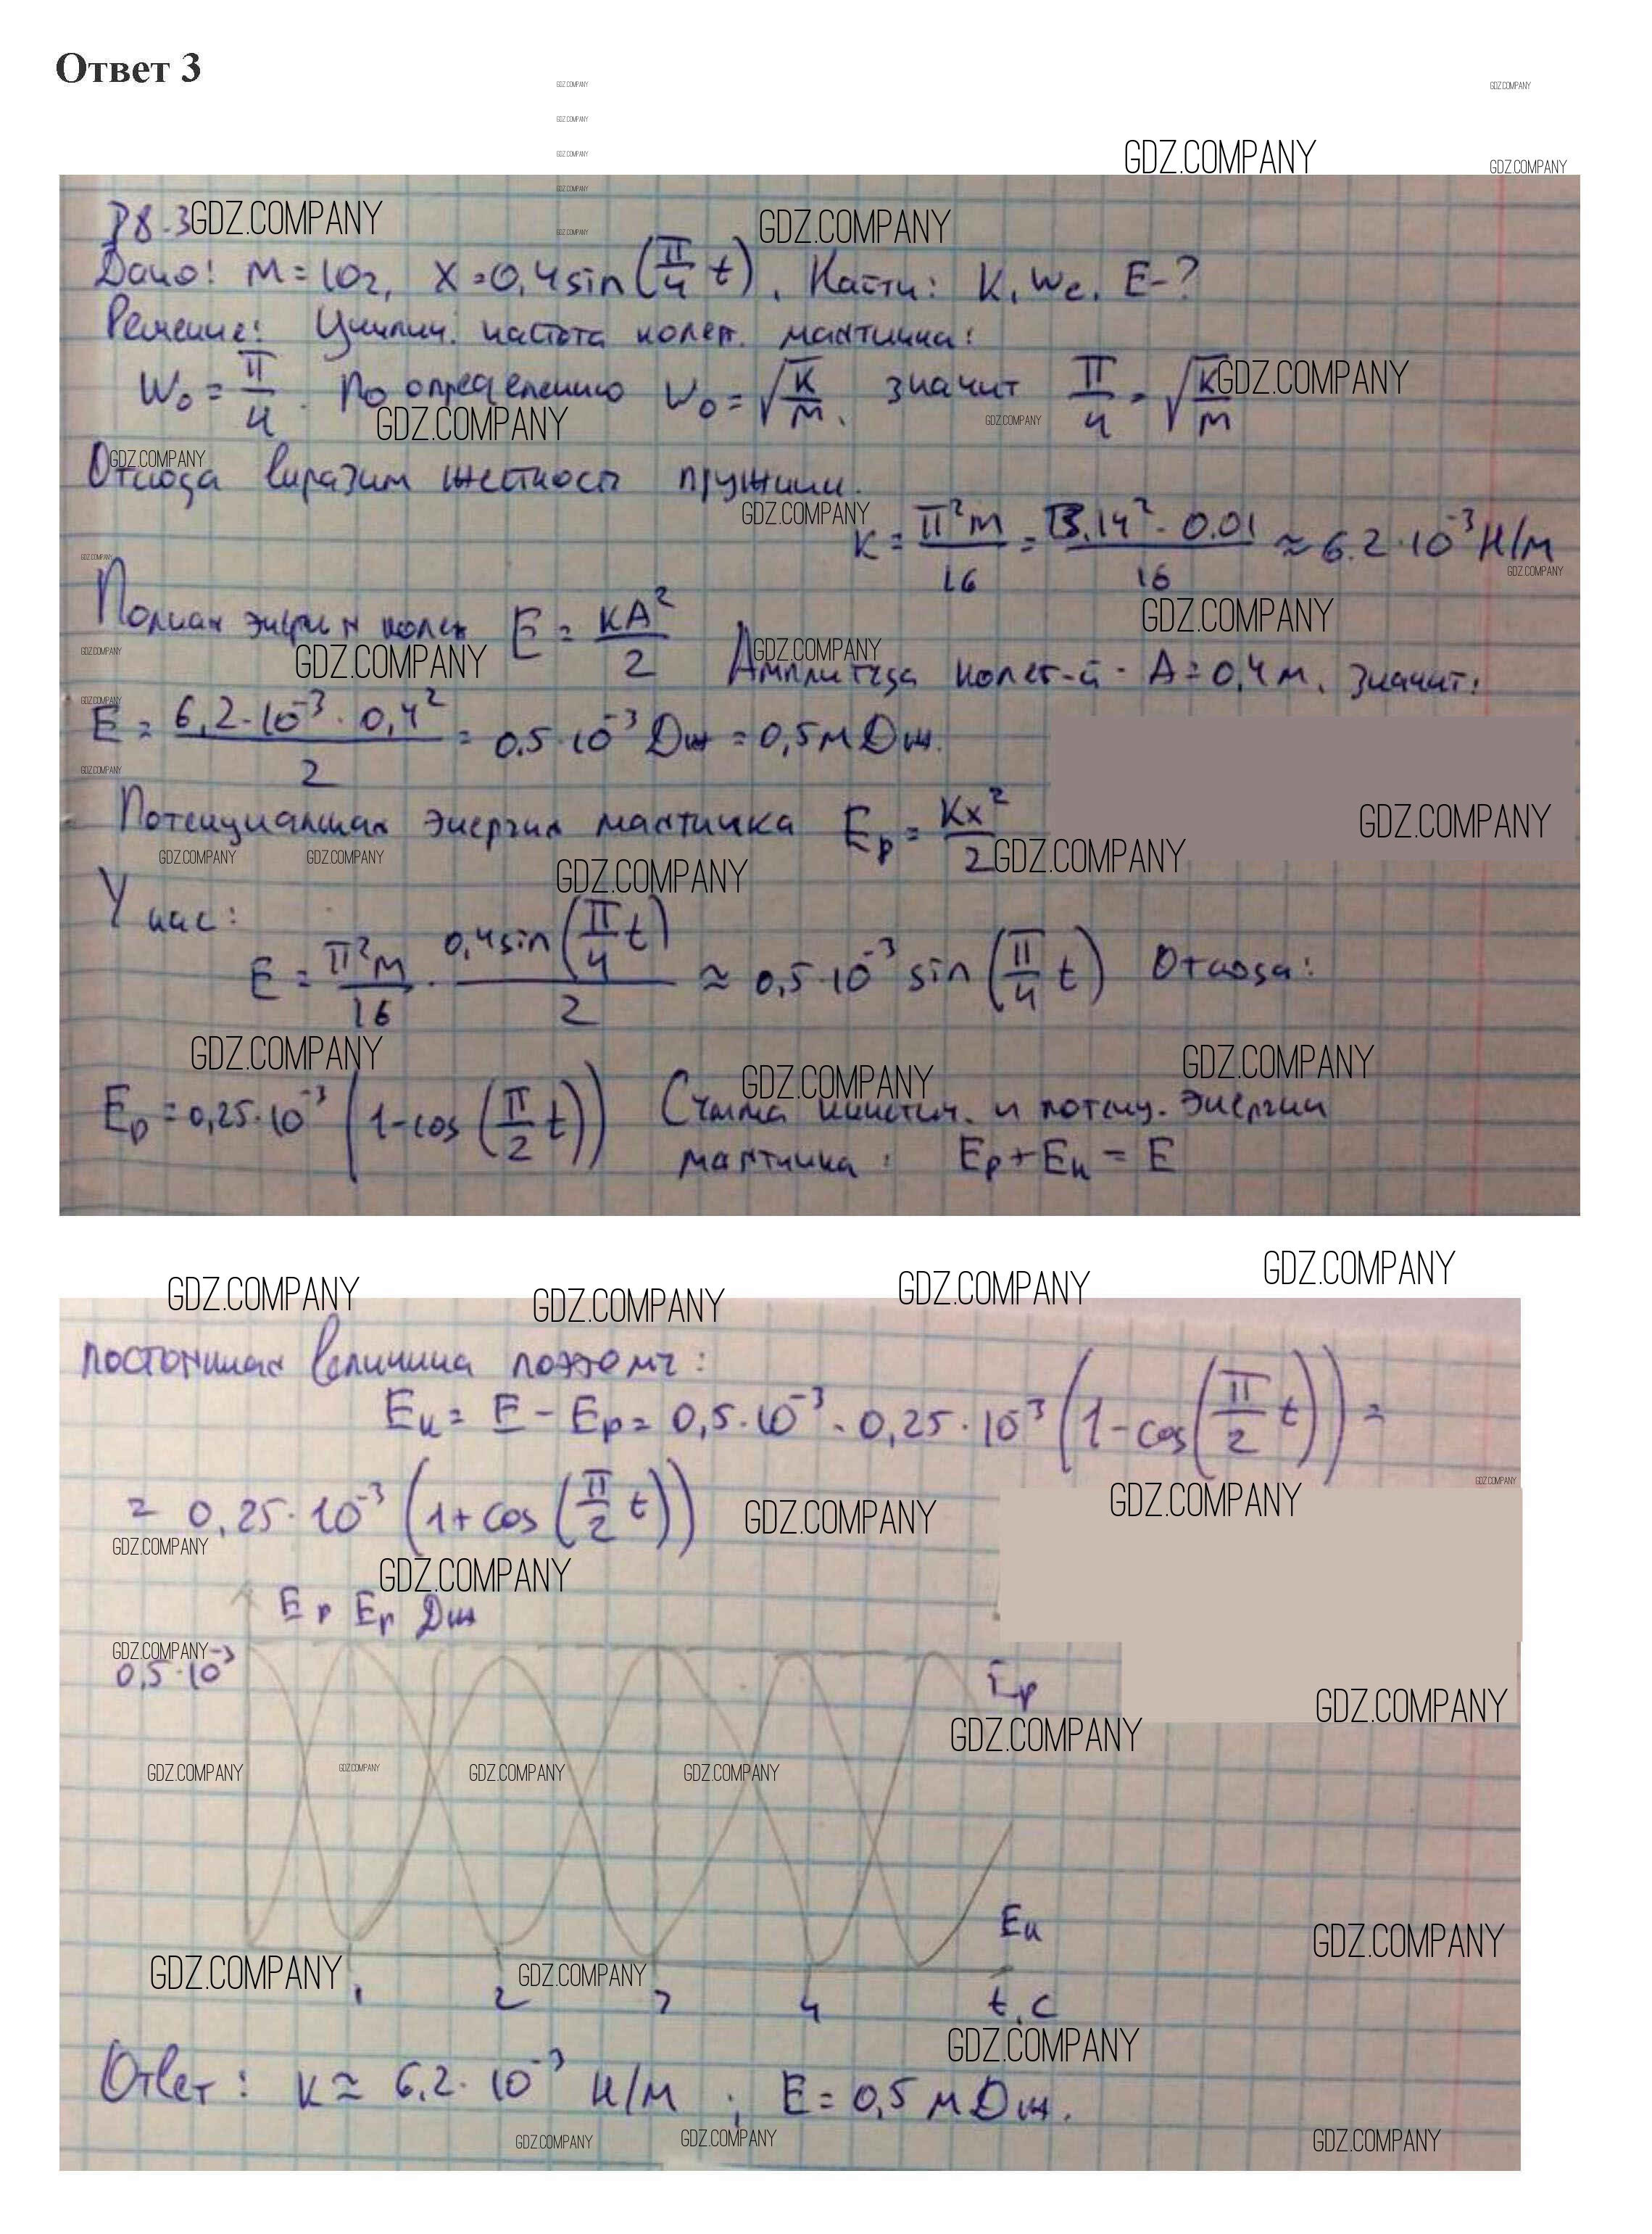 Ответ 3
Р8-3
Дано: m = 10г, x = 0,4 sin(π/4 t). Найти: K, We, E-?
Решение: Циклич. частота колеб. маятника:
W₀ = π/4. По определению W₀ = √(K/m), значит π/4 = √(K/m)
Отсюда выразим жесткость пружины.
K = π²m/16 = 3,14² · 0.01/16 ≈ 6.2 · 10⁻³ Н/м
Полная энергия колеб E = KA²/2 Амплитуда колеб-й - A = 0,4 м, значит:
E = 6,2 · 10⁻³ · 0,4²/2 = 0.5 · 10⁻³ Дж = 0,5 мДж.
Потенциальная энергия маятника Eр = Kx²/2
У нас:
E = π²m/16 · 0,4 sin(π/4 t)/2 ≈ 0,5 · 10⁻³ sin(π/4 t) Отсюда:
Eр = 0,25 · 10⁻³ (1 - cos(π/2 t)) Сумма кинетич. и потенц. энергии
маятника: Eр + Eк = E
постоянная величина поэтому:
Eк = E - Eр = 0,5 · 10⁻³ - 0,25 · 10⁻³ (1 - cos(π/2 t)) =
= 0,25 · 10⁻³ (1 + cos(π/2 t))
Eр Eр Дж
0,5 · 10⁻³
Eр
Eк
1 2 3 4 t, с
Ответ: K ≈ 6,2 · 10⁻³ Н/м ; E = 0,5 мДж.
GDZ.COMPANY